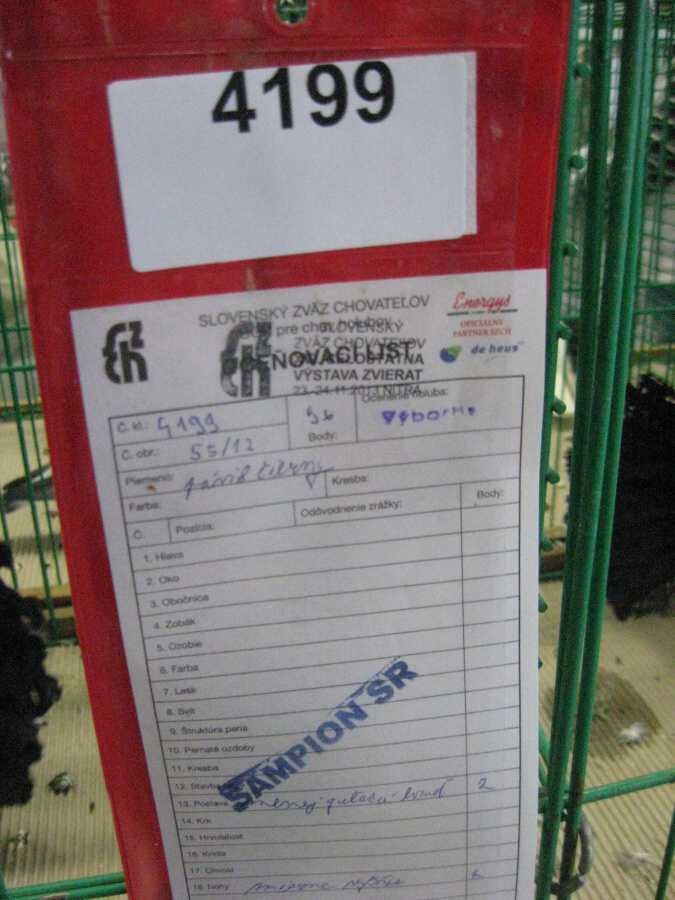 4199
SLOVENSKÝ ZVÄZ CHOVATEĽOV
pre chov holubov
SLOVENSKÝ
ZVÄZ CHOVATEĽOV
VÝSTAVA ZVIERAT
23.-24.11.2013 NITRA
Energys
OFICIÁLNY
PARTNER SZCH
de heus
Č. kl.: 4199
Body:
Ocenenie holuba:
výborný
Č. obr.: 55/12
Plemeno:
Farba:
Kresba:
Č.
Pozícia:
Odôvodnenie zrážky:
Body:
1. Hlava
2. Oko
3. Obočnica
4. Zobák
5. Ozobie
6. Farba
7. Lesk
8. Svit
9. Štruktúra peria
10. Pernaté ozdoby
11. Kresba
12. Stavba
13. Postava
2
14. Krk
15. Hrvoľatosť
16. Krídla
17. Chvost
18. Nohy
ŠAMPION SR